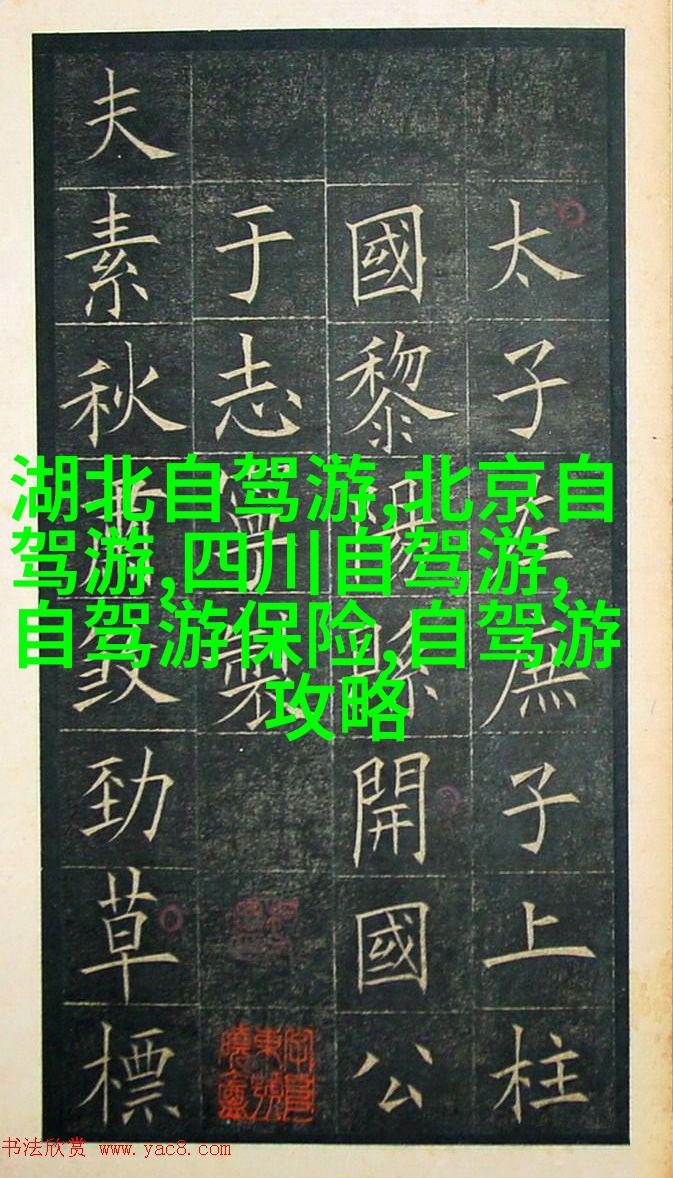 太子左庶子上柱
國黎陽縣開國公
于志寧製
夫素秋肅煞勁草標
湖北自驾游,北京自
驾游,四川自驾游,
自驾游保险,自驾游
攻略
书法欣赏 www.yac8.com